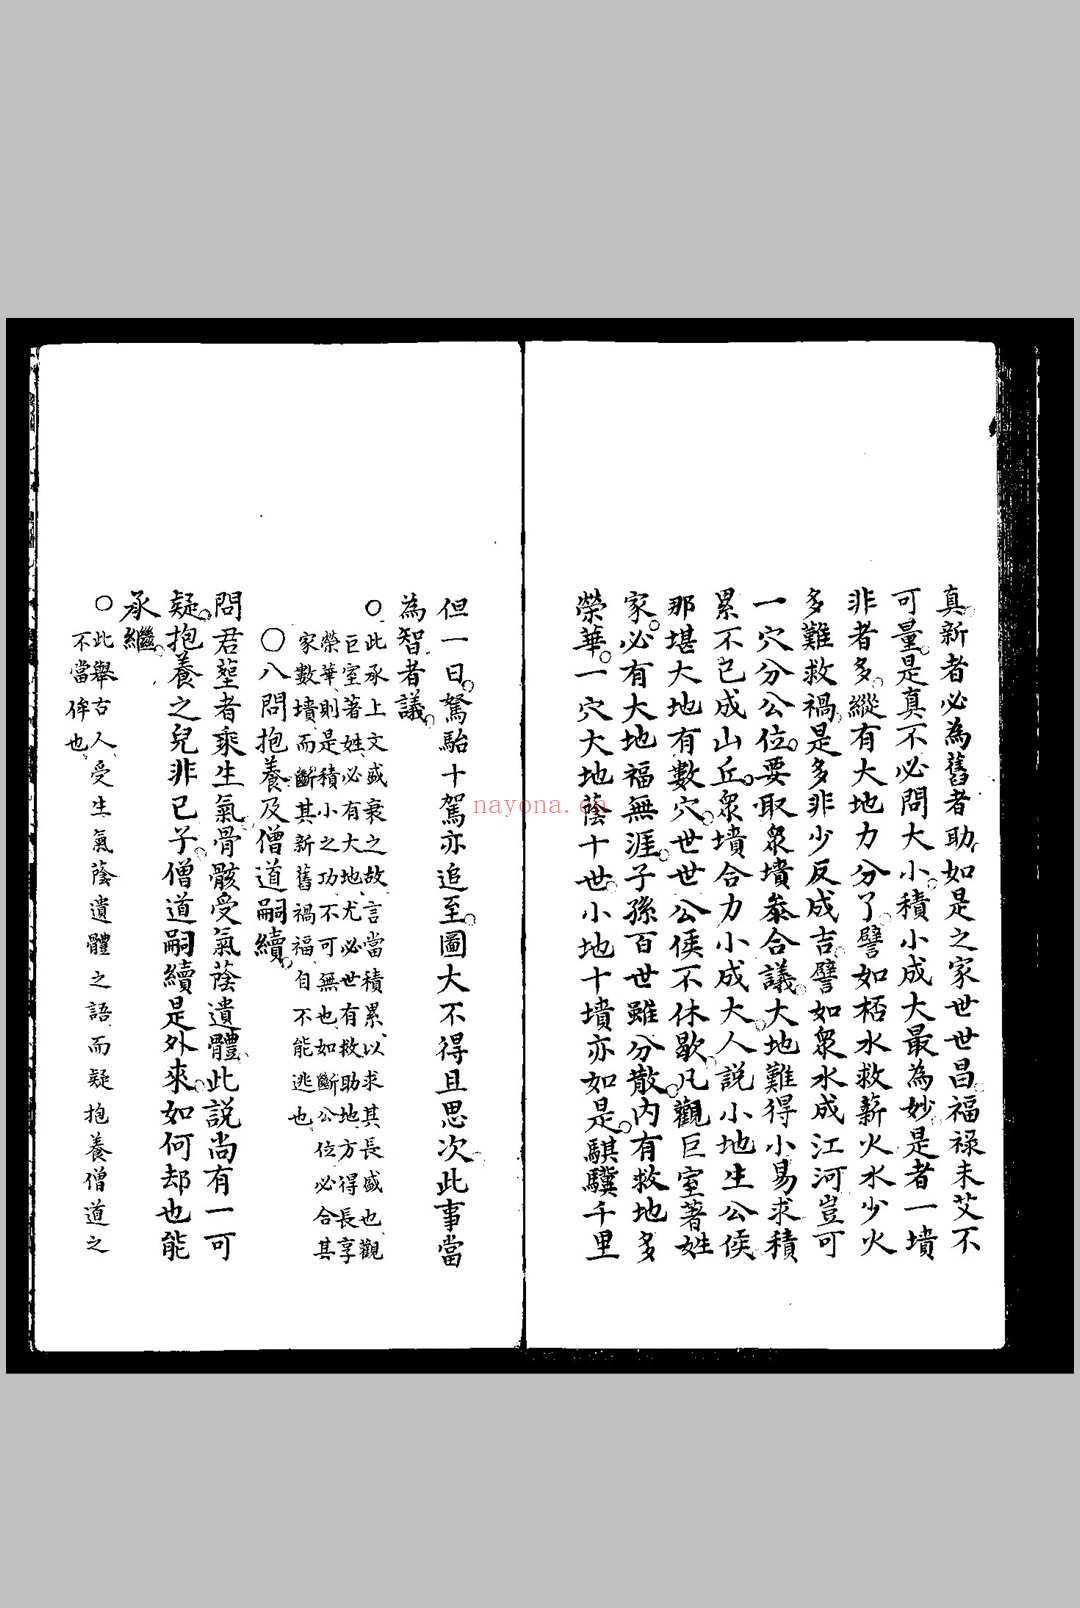 真新者必為舊者助如是之家世世昌福祿未艾不
可量是真不必問大小積小成大最為妙是者一墳
非者多縱有大地力分了譬如栝水救薪火水少火
多難救禍是多非少反成吉譬如衆水成江河豈可
一穴分公位要取衆墳叅合議大地難得小易求積
累不已成山丘衆墳合力小成大人說小地生公侯
那堪大地有數穴世世公侯不休歇凡觀巨室著姓
家必有大地福無涯子孫百世雖分散內有救地多
榮華一穴大地蔭十世小地十墳亦如是騏驥千里
但一日駑駘十駕亦追至圖大不得且思次此事當
為智者議
○此承上文盛衰之故言當積累以求其長盛也觀
巨室著姓必有大地尤必世有救助地方得長享
榮華則是積小之功不可無也如斷公位必合其
家數墳而斷其新舊禍福自不能逃也
○八問抱養及僧道嗣續
問君塟者乘生氣骨骸受氣蔭遺體此說尚有一可
疑抱養之兒非已子僧道嗣續是外來如何却也能
承繼
○此舉古人受生氣蔭遺體之語而疑抱養僧道之
不當侔也
nayona.cn